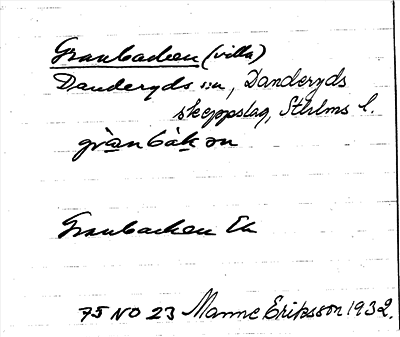 Granbacken (villa)
Danderyds sn, Danderyds
skeppslag, Sthlms l.
grà̀nbák ən
Granbacken Ek
75 NO 23 Manne Eriksson 1932.